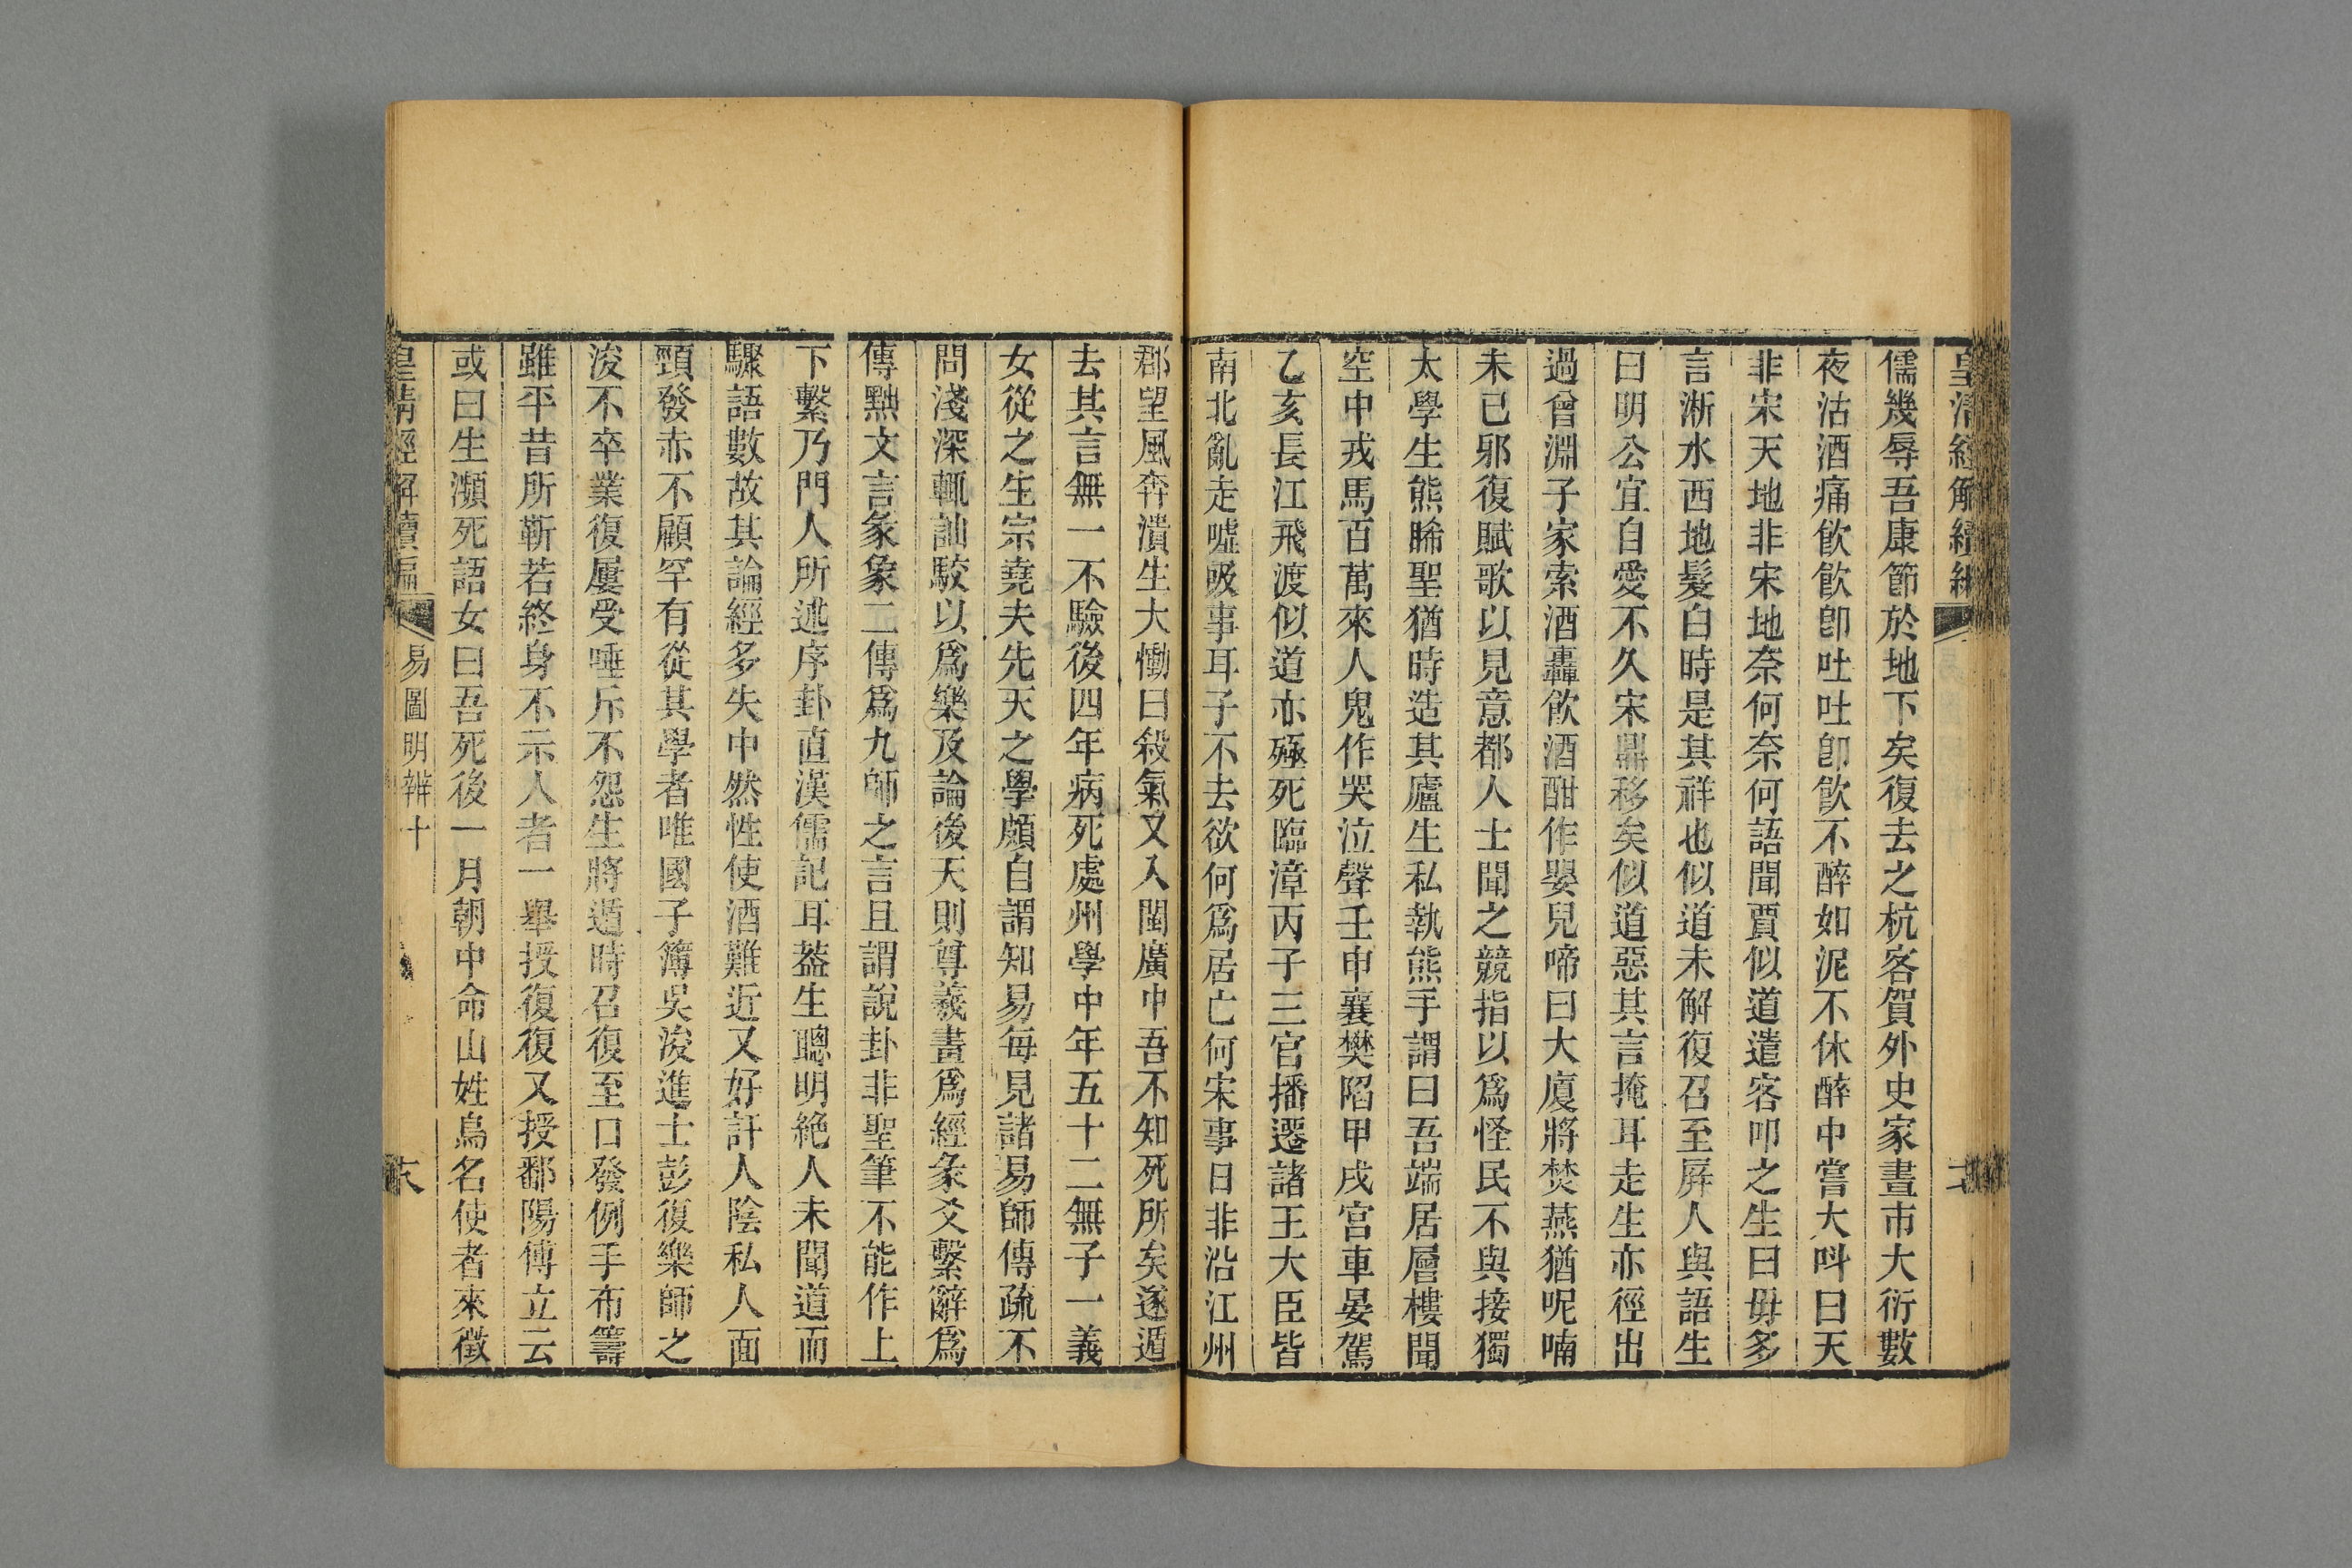 儒幾辱吾康節於地下矣復去之杭客賀外史家晝市大衍數
夜沽酒痛飮飮卽吐吐卽飮不醉如泥不休醉中嘗大呌曰天
非宋天地非宋地奈何奈何語聞賈似道遣客叩之生曰毋多
言浙水西地髮白時是其祥也似道未解復召至屏人與語生
曰明公宜自愛不久宋鼎移矣似道惡其言掩耳走生亦徑出
過曾淵子家索酒轟飮酒酣作嬰兒啼曰大廈將焚燕猶呢喃
未已邪復賦歌以見意都人士聞之競指以爲怪民不與接獨
太學生熊睎聖猶時造其廬生私執熊手謂曰吾端居層樓聞
空中戎馬百萬來人鬼作哭泣聲壬申襄樊陷甲戌宮車晏駕
乙亥長江飛渡似道亦殛死臨漳丙子三宮播遷諸王大臣皆
南北亂走噓吸事耳子不去欲何爲居亡何宋事日非沿江州
郡望風奔潰生大慟曰殺氣又入閩廣中吾不知死所矣遂遁
去其言無一不驗後四年病死處州學中年五十二無子一義
女從之生宗堯夫先天之學頗自謂知易每見諸易師傳疏不
問淺深輒訕駮以爲樂及論後天則尊羲畫爲經彖爻繫辭爲
傳黜文言彖象二傳爲九師之言且謂說卦非聖筆不能作上
下繫乃門人所述序卦直漢儒記耳葢生聰明絶人未聞道而
驟語數故其論經多失中然性使酒難近又好訐人陰私人面
頸發赤不顧罕有從其學者唯國子簿吳浚進士彭復樂師之
浚不卒業復屢受唾斥不怨生將遁時召復至口發例手布籌
雖平昔所靳若終身不示人者一舉授復復又授鄱陽傅立云
或曰生瀕死語女曰吾死後一月朝中命山姓鳥名使者來徵
皇淸經解續編
易圖明辨十